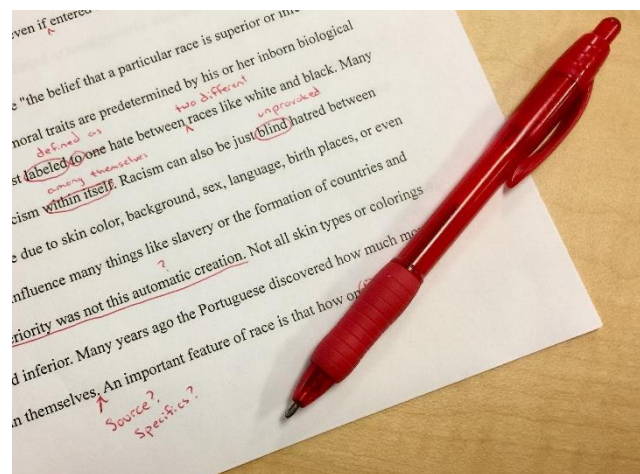 ven if entered
e "the belief that a particular race is superior or
moral traits are predetermined by his or her inborn biological
two different
st labeled to one hate between races like white and black. Many
defined as
unprovoked
cism within itself. Racism can also be just blind hatred between
among themselves
e due to skin color, background, sex, language, birth places, or even
influence many things like slavery or the formation of countries and
?
eriority was not this automatic creation. Not all skin types or colorings
d inferior. Many years ago the Portuguese discovered how much
n themselves. An important feature of race is that how
Source?
Specifics?